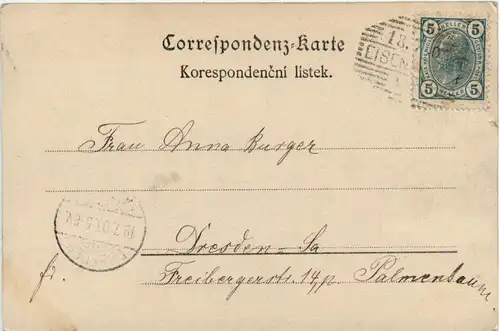 Correspondenz-Karte
Korespondenční lístek.
5 5
5 5
18.
EISEN
Frau Anna Burger
Dresden-Sa
Freibergerstr. 14, p. Palmenbaum
fr.
19.7.0